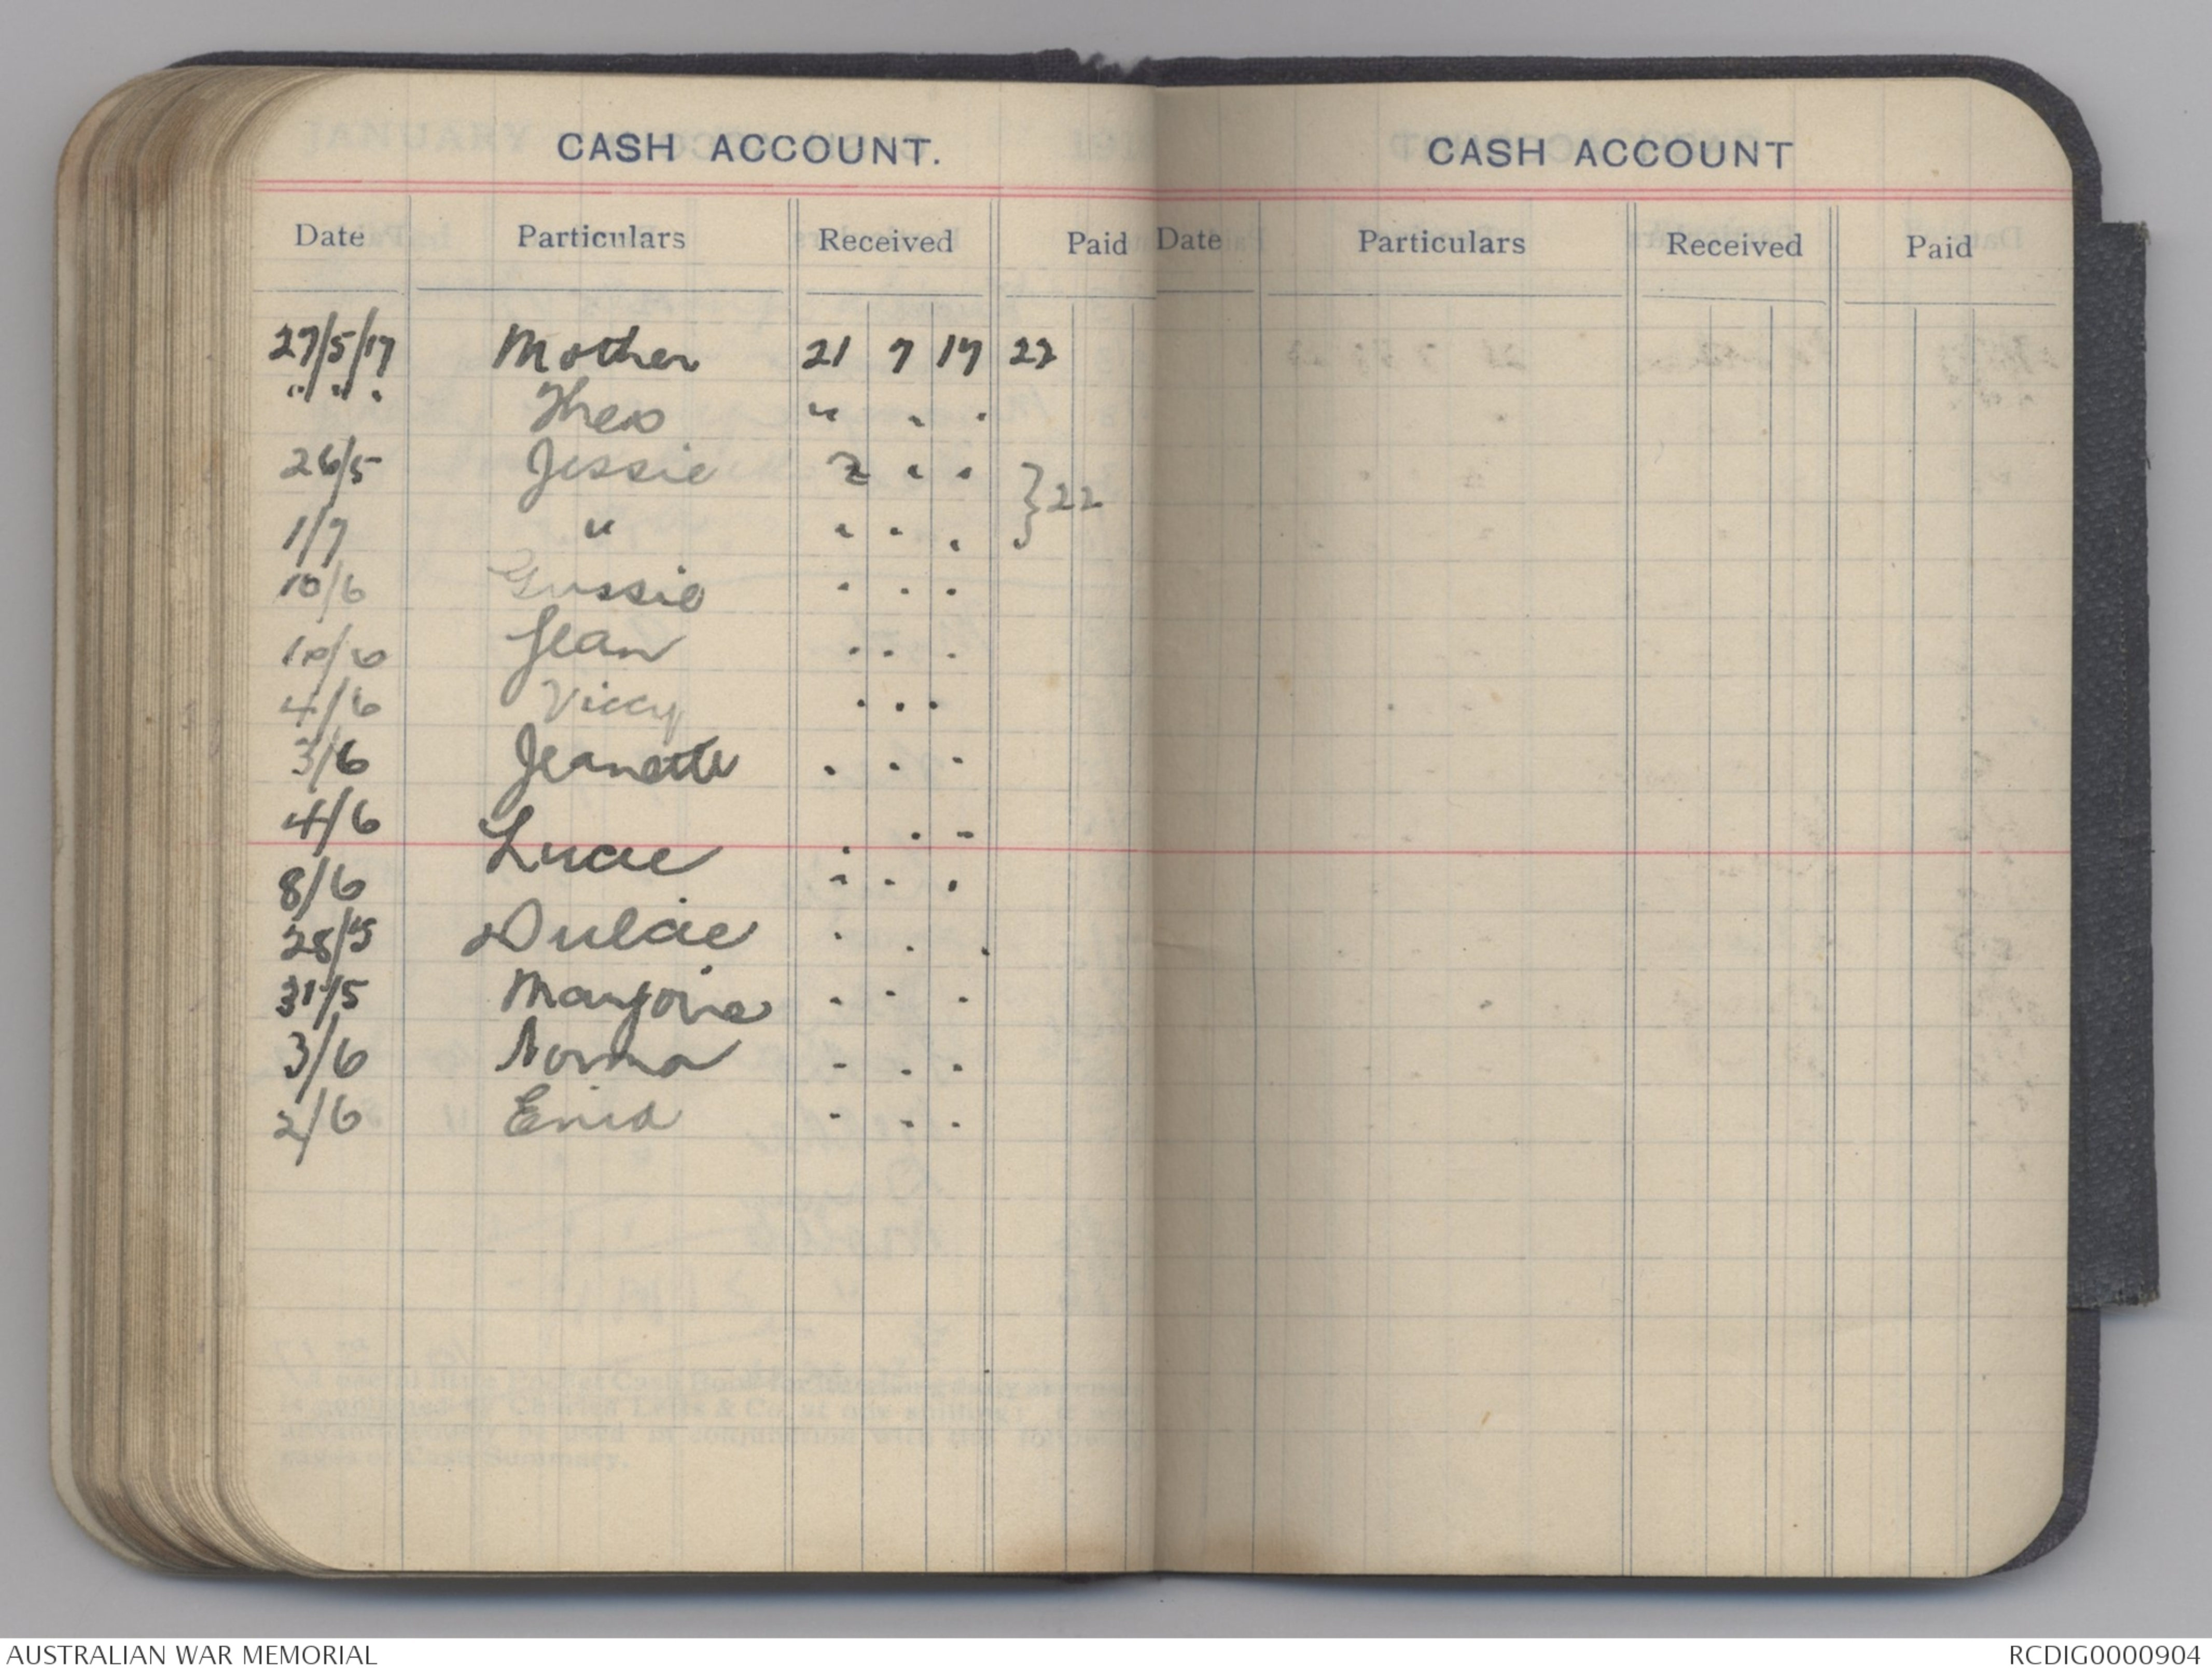 CASH ACCOUNT.
Date Particulars Received Paid
27/5/17 Mother 21 7 17 22
" " " Theo " " "
26/5 Jessie 2 " " } 22
1/7 " " " "
10/6 Gussie " " "
10/6 Jean " " "
4/6 Viccy " " "
3/6 Jeanette " " "
4/6 Lucie " " "
8/6 " " "
28/5 Dulcie " " "
31/5 Marjorie " " "
3/6 Norma " " "
2/6 Enid " " "
CASH ACCOUNT
Date Particulars Received Paid
AUSTRALIAN WAR MEMORIAL
RCDIG0000904